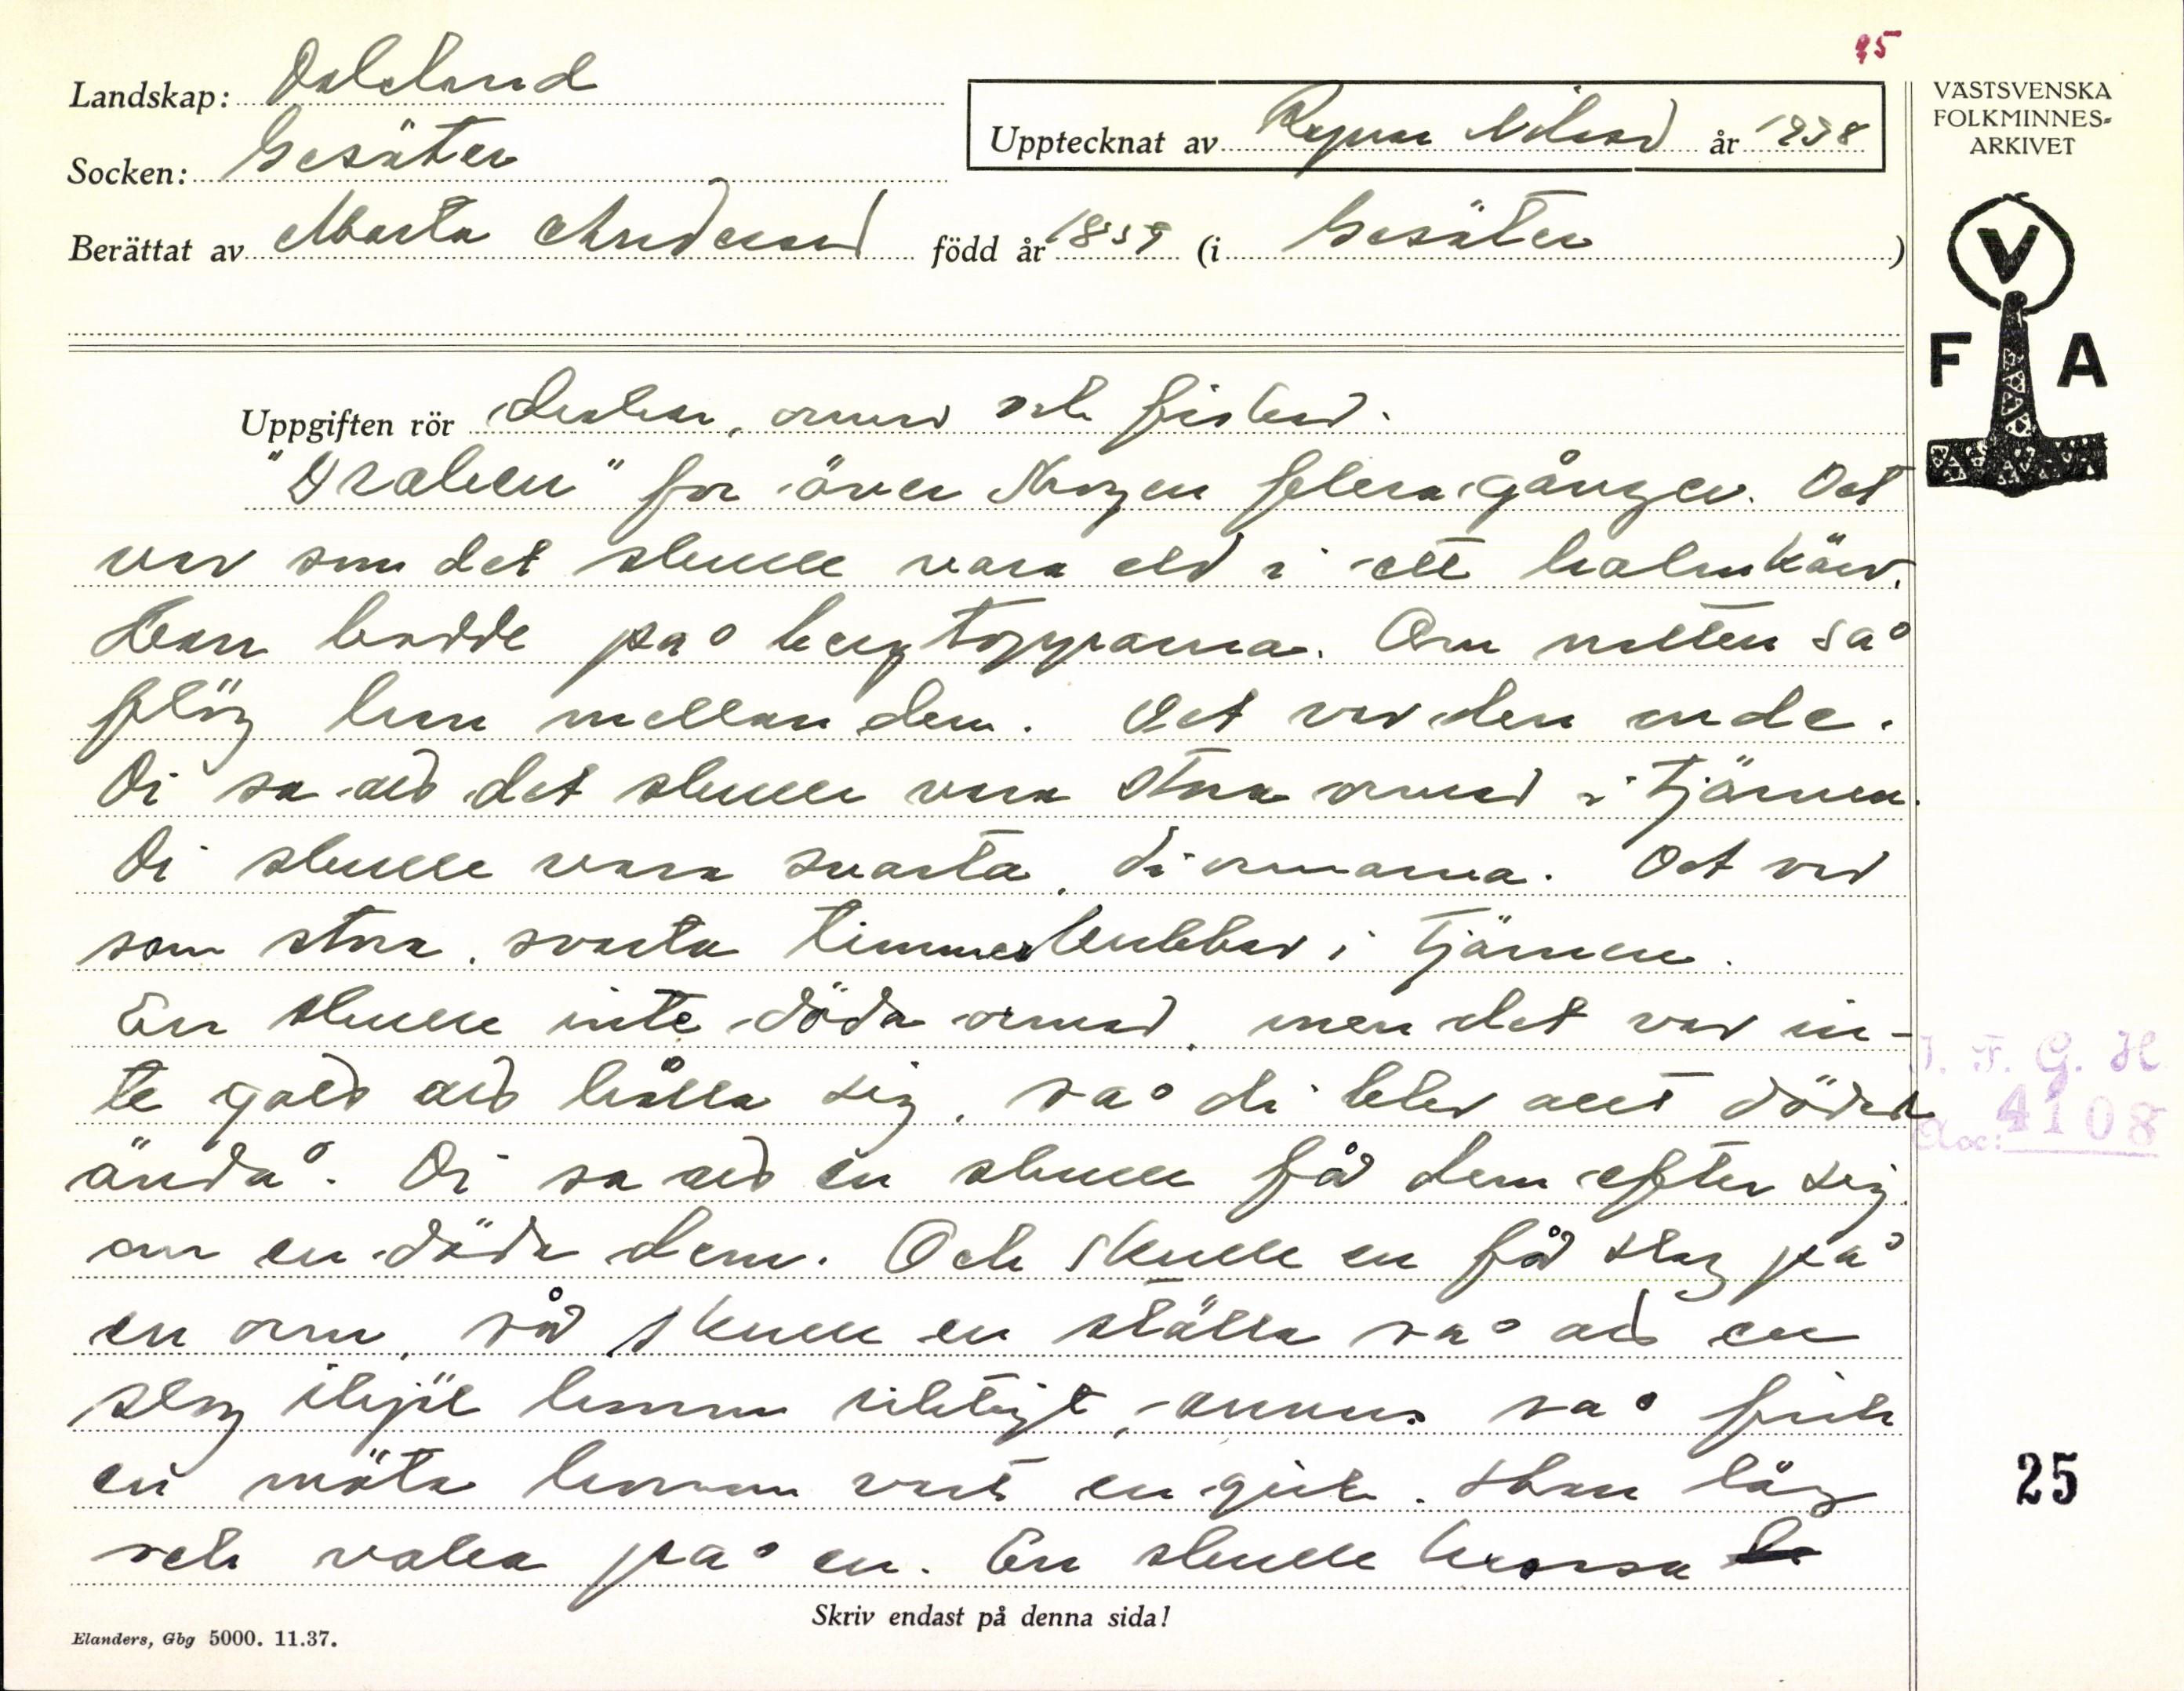 95
Landskap: Dalsland
Upptecknat av Ragnar Nilsson år 1938
Socken: Gesäter
Berättat av Marta Andersson född år 1859 (i Gesäter)
VÄSTSVENSKA
FOLKMINNES-
ARKIVET
V
F A
Uppgiften rör draken, ormar och fiskar.
"Draken" for över skogen flera gånger. Det
var som det skulle vara eld i ett halmkärv.
Han bodde på bergtopparna. Om natten så
flög han mellan dem. Det var den onde.
Di sa att det skulle vara stora ormar i tjärnen.
Di skulle vara svarta, di ormarna. Det var
som stora, svarta timmerkubbar i tjärnen.
En skulle inte döda ormar, men det var in-
te gott att hålla sig, så di blev allt döda
ändå. Di sa att en skulle få dem efter sig
om en döda dem. Och skulle en få slag på
en orm, så skulle en ställa så att en
slog ihjäl honom riktigt, annars så fick
en möta honom vart en gick. Han låg
och vakta på en. En skulle krossa
J. F. G. H.
Acc: 4108
25
Skriv endast på denna sida!
Elanders, Gbg 5000. 11.37.